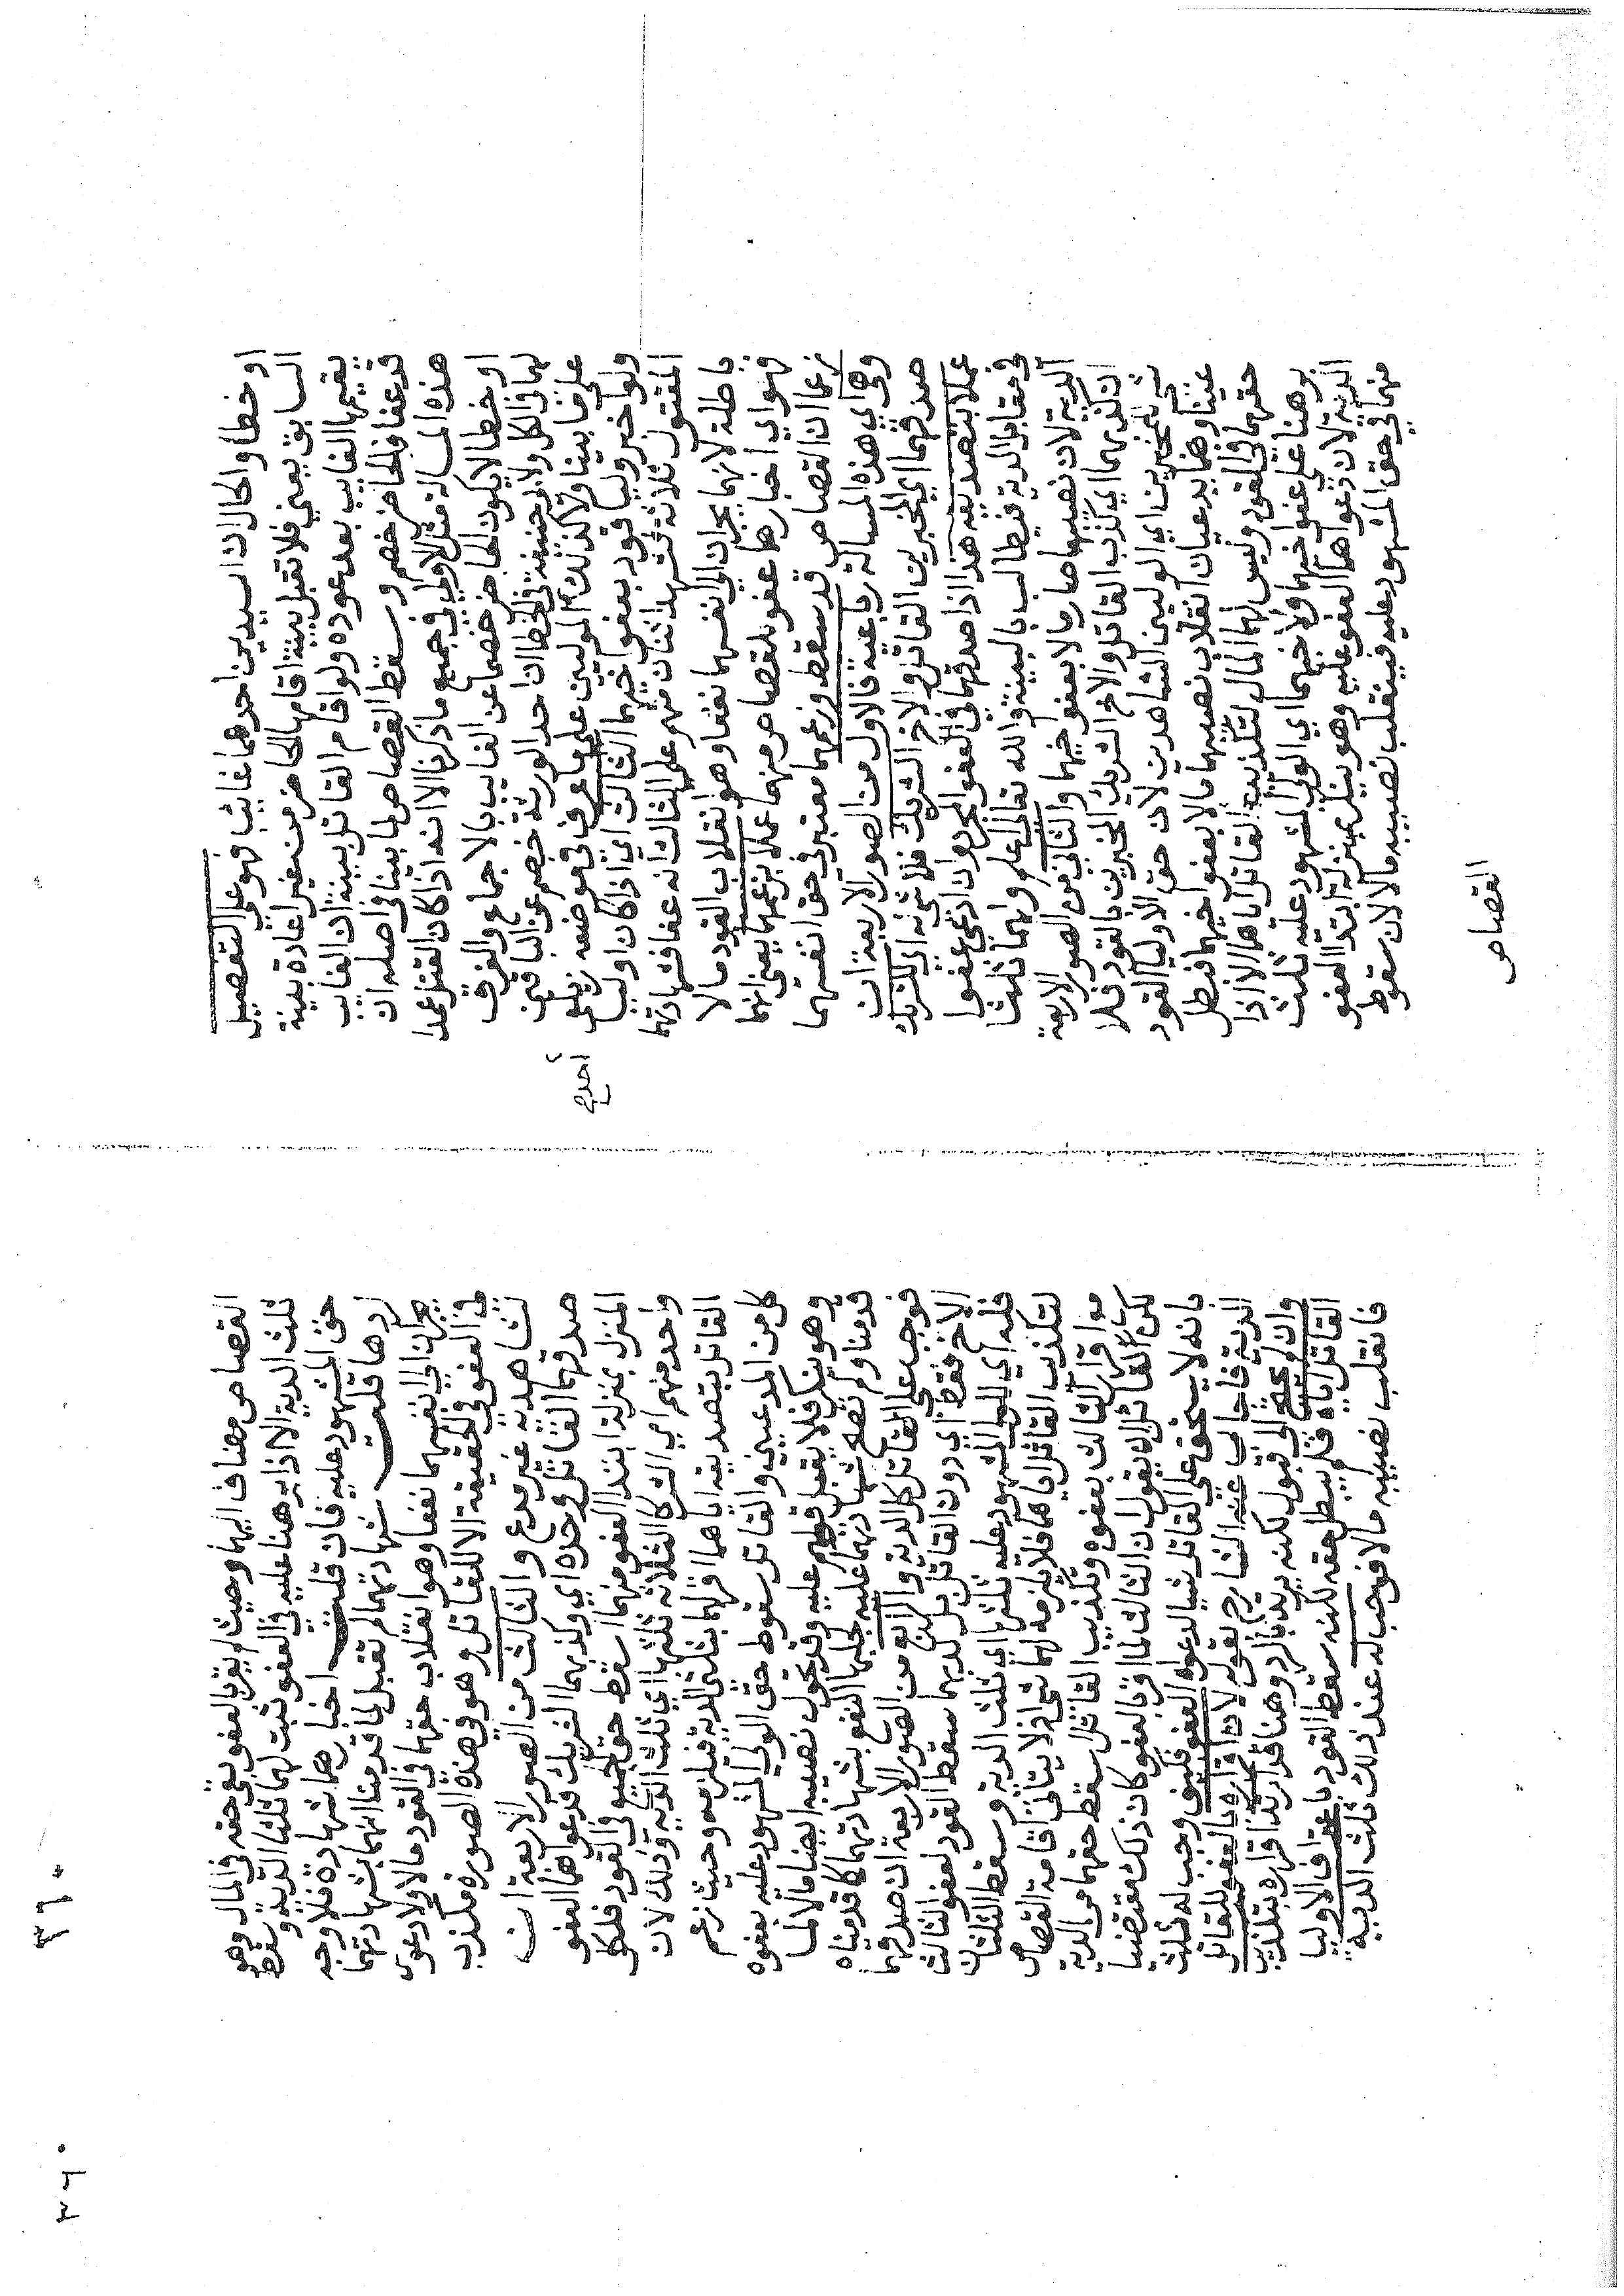 او خطا والحال ان السيدين احدهما غائب فهو على التفصيل
السابق يعني فلا تقبل بينة اقامها الحاضر من غير اعادة بينة
يقيمها الغايب بعد عوده ولو اقام القاتل بينة ان الغايب
قد عفا فالحاضر خصم وسقط القصاص لما بينا في اصله ان
هذه المسالة مثل الاولي في جميع ما ذكرنا الا انه اذا كان القتل عمدا
او خطا لا يكون الحاضر خصما عن الغايب بالاجماع والفرق
لهما في الكل ولابي حنيفة في الخطا ان احد الورثة خصم عن الباقين
علي ما بينا ولا كذلك احد الموليين علي ما عرف في موضعه زيلعي
ولو اخبر وليا قود بعفو اخيهما الثالث اي اذا كان اوليا
المقتول ثلاثة فشهد اثنان منهم على الثالث انه عفا فشهادتهما
باطلة لانهما يجران الي انفسهما نفعا وهو انقلاب القود مالا
فهو اي اخبارهما عفو للقصاص منهما عملا بزعمهما يعني انهما
زعما ان القصاص قد سقط وزعمهما معتبر في حق انفسهما
وهي اي هذه المسالة رباعية فالاول من الصور الاربعة ان
صدقهما اي المخبرين القاتل والاخ الشريك فلا شي له اي للشريك
عملا بتصديقه هذا اذا صدقهما في العفو المجرد وان ادعي عفوا
في مقابلة الدية فيطالب بالبينة والله تعالى اعلم ولهما ثلثا
الدية لان نصيبهما صار مالا بعفو اخيهما والثاني من الصور الاربعة
ان كذبهما اي كذب القاتل والاخ الشريك المخبرين بالقود فلا
شي للمخبرين اي الوليين الشاهدين لان حق الاوليا القود
عينا وهما يدعيان انقلاب نصيبهما مالا بعفو اخيهما فبطل
حقهما في القود وليس لهما المال لتكذيب القاتل اياهما الا اذا
برهنا علي عفو اخيهما ولاخيهما اي الولي المشهود عليه ثلث
الدية لان دعواهما العفو عليه وهو ينكر بمنزلة ابتدا العفو
منهما في حق المشهود عليه فينقلب نصيبه مالا لان سقوط
القصاص
٣٦٠
القصاص مضاف اليهما وحيث لم يقر بالعفو بقي حقه في المال وهو
ثلث الدية الا اذا برهنا عليه في العفو ثبت لهما ثلثا الدية وسقط
حق المشهود عليه فان قلت اخبارهما شهادة فلا وجه
لردها قلت شهادتهما لم تقبل لما قدمنا انهما بشهادتهما
يجران الي انفسهما نفعا وهو انقلاب حقهما في القود مالا ولا دعوى
في العفو في الحقيقة الا للقاتل وهو في هذه الصورة مكذب
لشاهديه غير مدع والثالث من الصور الاربعة ان
صدقهما القاتل وحده اي وكذبهما الشريك فدعواهما العفو
المنزل بمنزلة ابتدا العفو منهما اسقط حق الجميع في القود فلكل
واحد منهم اي الشركا الثلاثة ثلثها اي ثلث الدية وذلك لان
القاتل بتصديقه اياهما اقر لهما بثلثي الدية فيلزمه وحيث زعم
كل من المدعيين والقاتل سقوط حق الولي المشهود عليه بعفوه
وهو ينكر فلا يقبل قولهم عليه وقد تحول نصيبه ايضا مالا لما
قدمنا ولم تصلح شهادتهما عليه لجلبهما النفع بشهادتهما كما قدمناه
فوجب على القاتل كل الدية والرابع من الصور الاربعة ان صدقهما
الاخ فقط اي دون القاتل بل كذبهما سقط القود لعفو الثالث
فله اي للولي المشهود عليه ثلثها اي ثلث الدية وسقط الثلثان
لتكذيب القاتل اياهما فلا تلزمه لهما شي اذ لا يتاتى اقامة القصاص
مع اقرار الثالث بعفوه وتكذيب القاتل سقط حقهما من الدية
لكن القاتل ان يقول ان الثالث لما اقر بالعفو كان ذلك مقتضيا
بانه لا يستحق على القاتل شيا لدعواه العفو فكيف وجب له ثلث
الدية فاجاب عنه الشارح بقوله لان اقراره بالعفو للقاتل
وان تضمن قبول لكنه يرتد بالرد وهنا قد ارتد اقراره بتكذيب
القاتل اياه فلم يبطل حقه لكنه سقط القود باعتراف الاوليا
فانقلب نصيبه مالا فوجب له عند ذلك ثلث الدية
٣٦٠